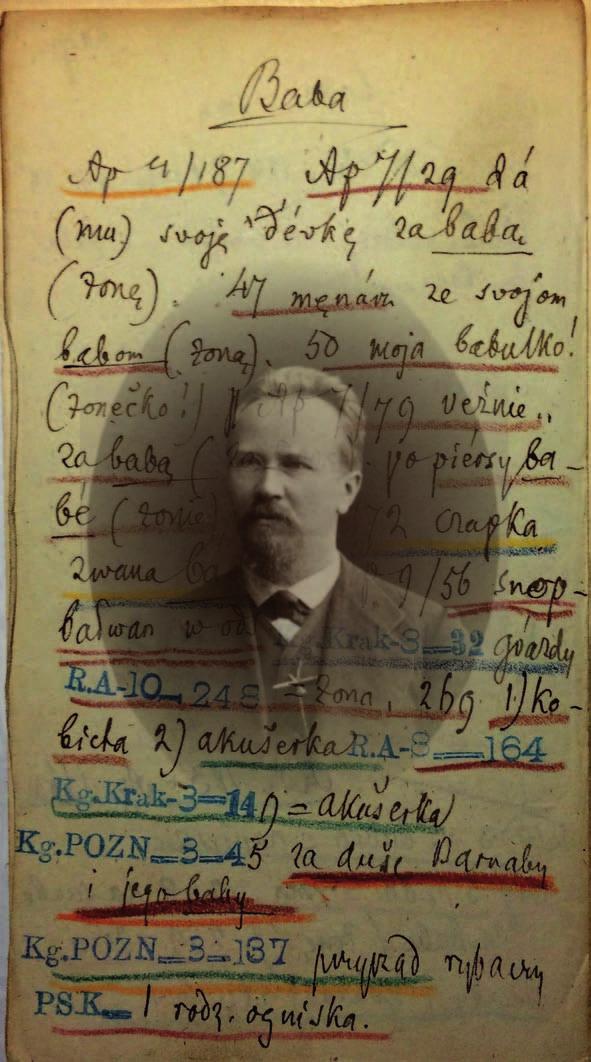 Baba
Ap 4/187 Ap 7/29 dá
(mu) svoję dévkę za babą
(żonę). 47 męnáu̯ ze svojom
babom (żoną). 50 moja babulko!
(żonečko!) Ap 7/79 veźnie..
za babą ( . po piérsy ba-
bé (żonie) 72 czapka
zwana ba 9/56 snop-
bałwan w Kg.Krak-3=32 gwardy
R.A-10=248 = żona, 269 1) ko-
bieta 2) akušerka R.A-8=164
Kg.Krak-3=149 = akušerka
Kg.POZN=3=45 za duše Barnaby
i jego baby
Kg.POZN=3=137 przyrząd rybacny
PS.K= 1 rodz. ogniska.